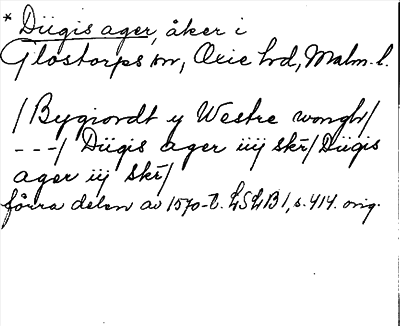 * Diigis ager, åker i
Glostorps sn, Oxie hd, Malm. l.
/Bygiordt y Westre wongh/
---/ Diigis ager iiij skr̄/Diigis
ager iij skr̄/
förra delen av 1570-t. LSLB 1, s. 414. orig.